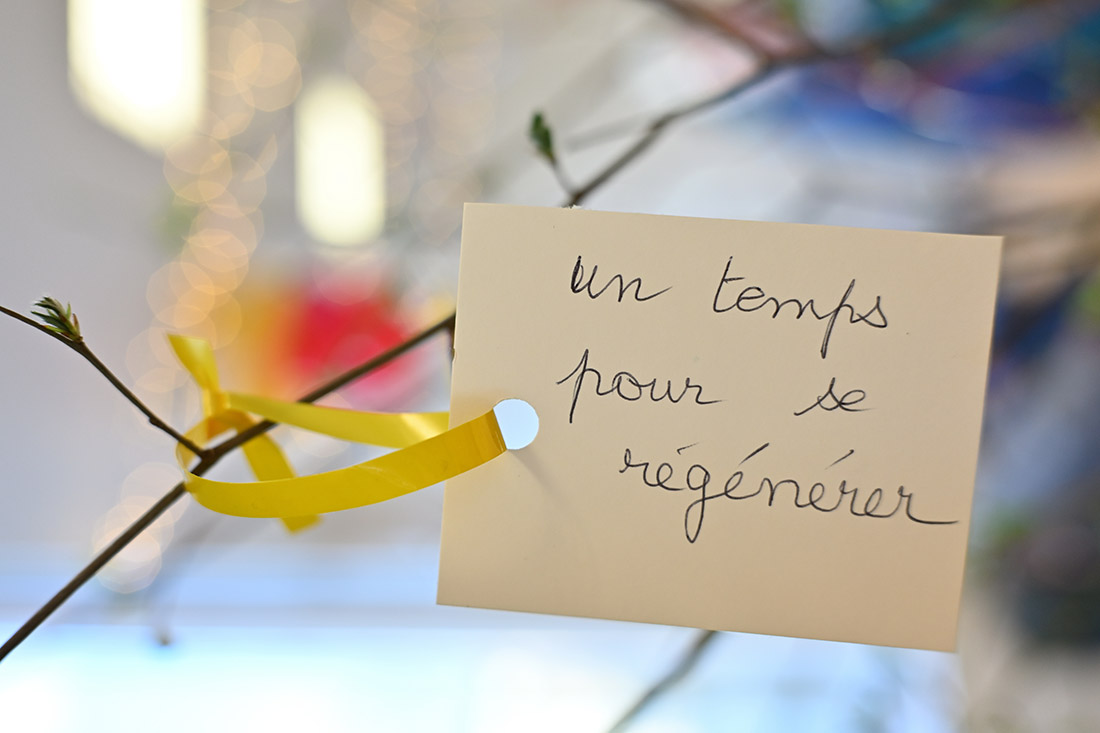 un temps
pour se
régénérer